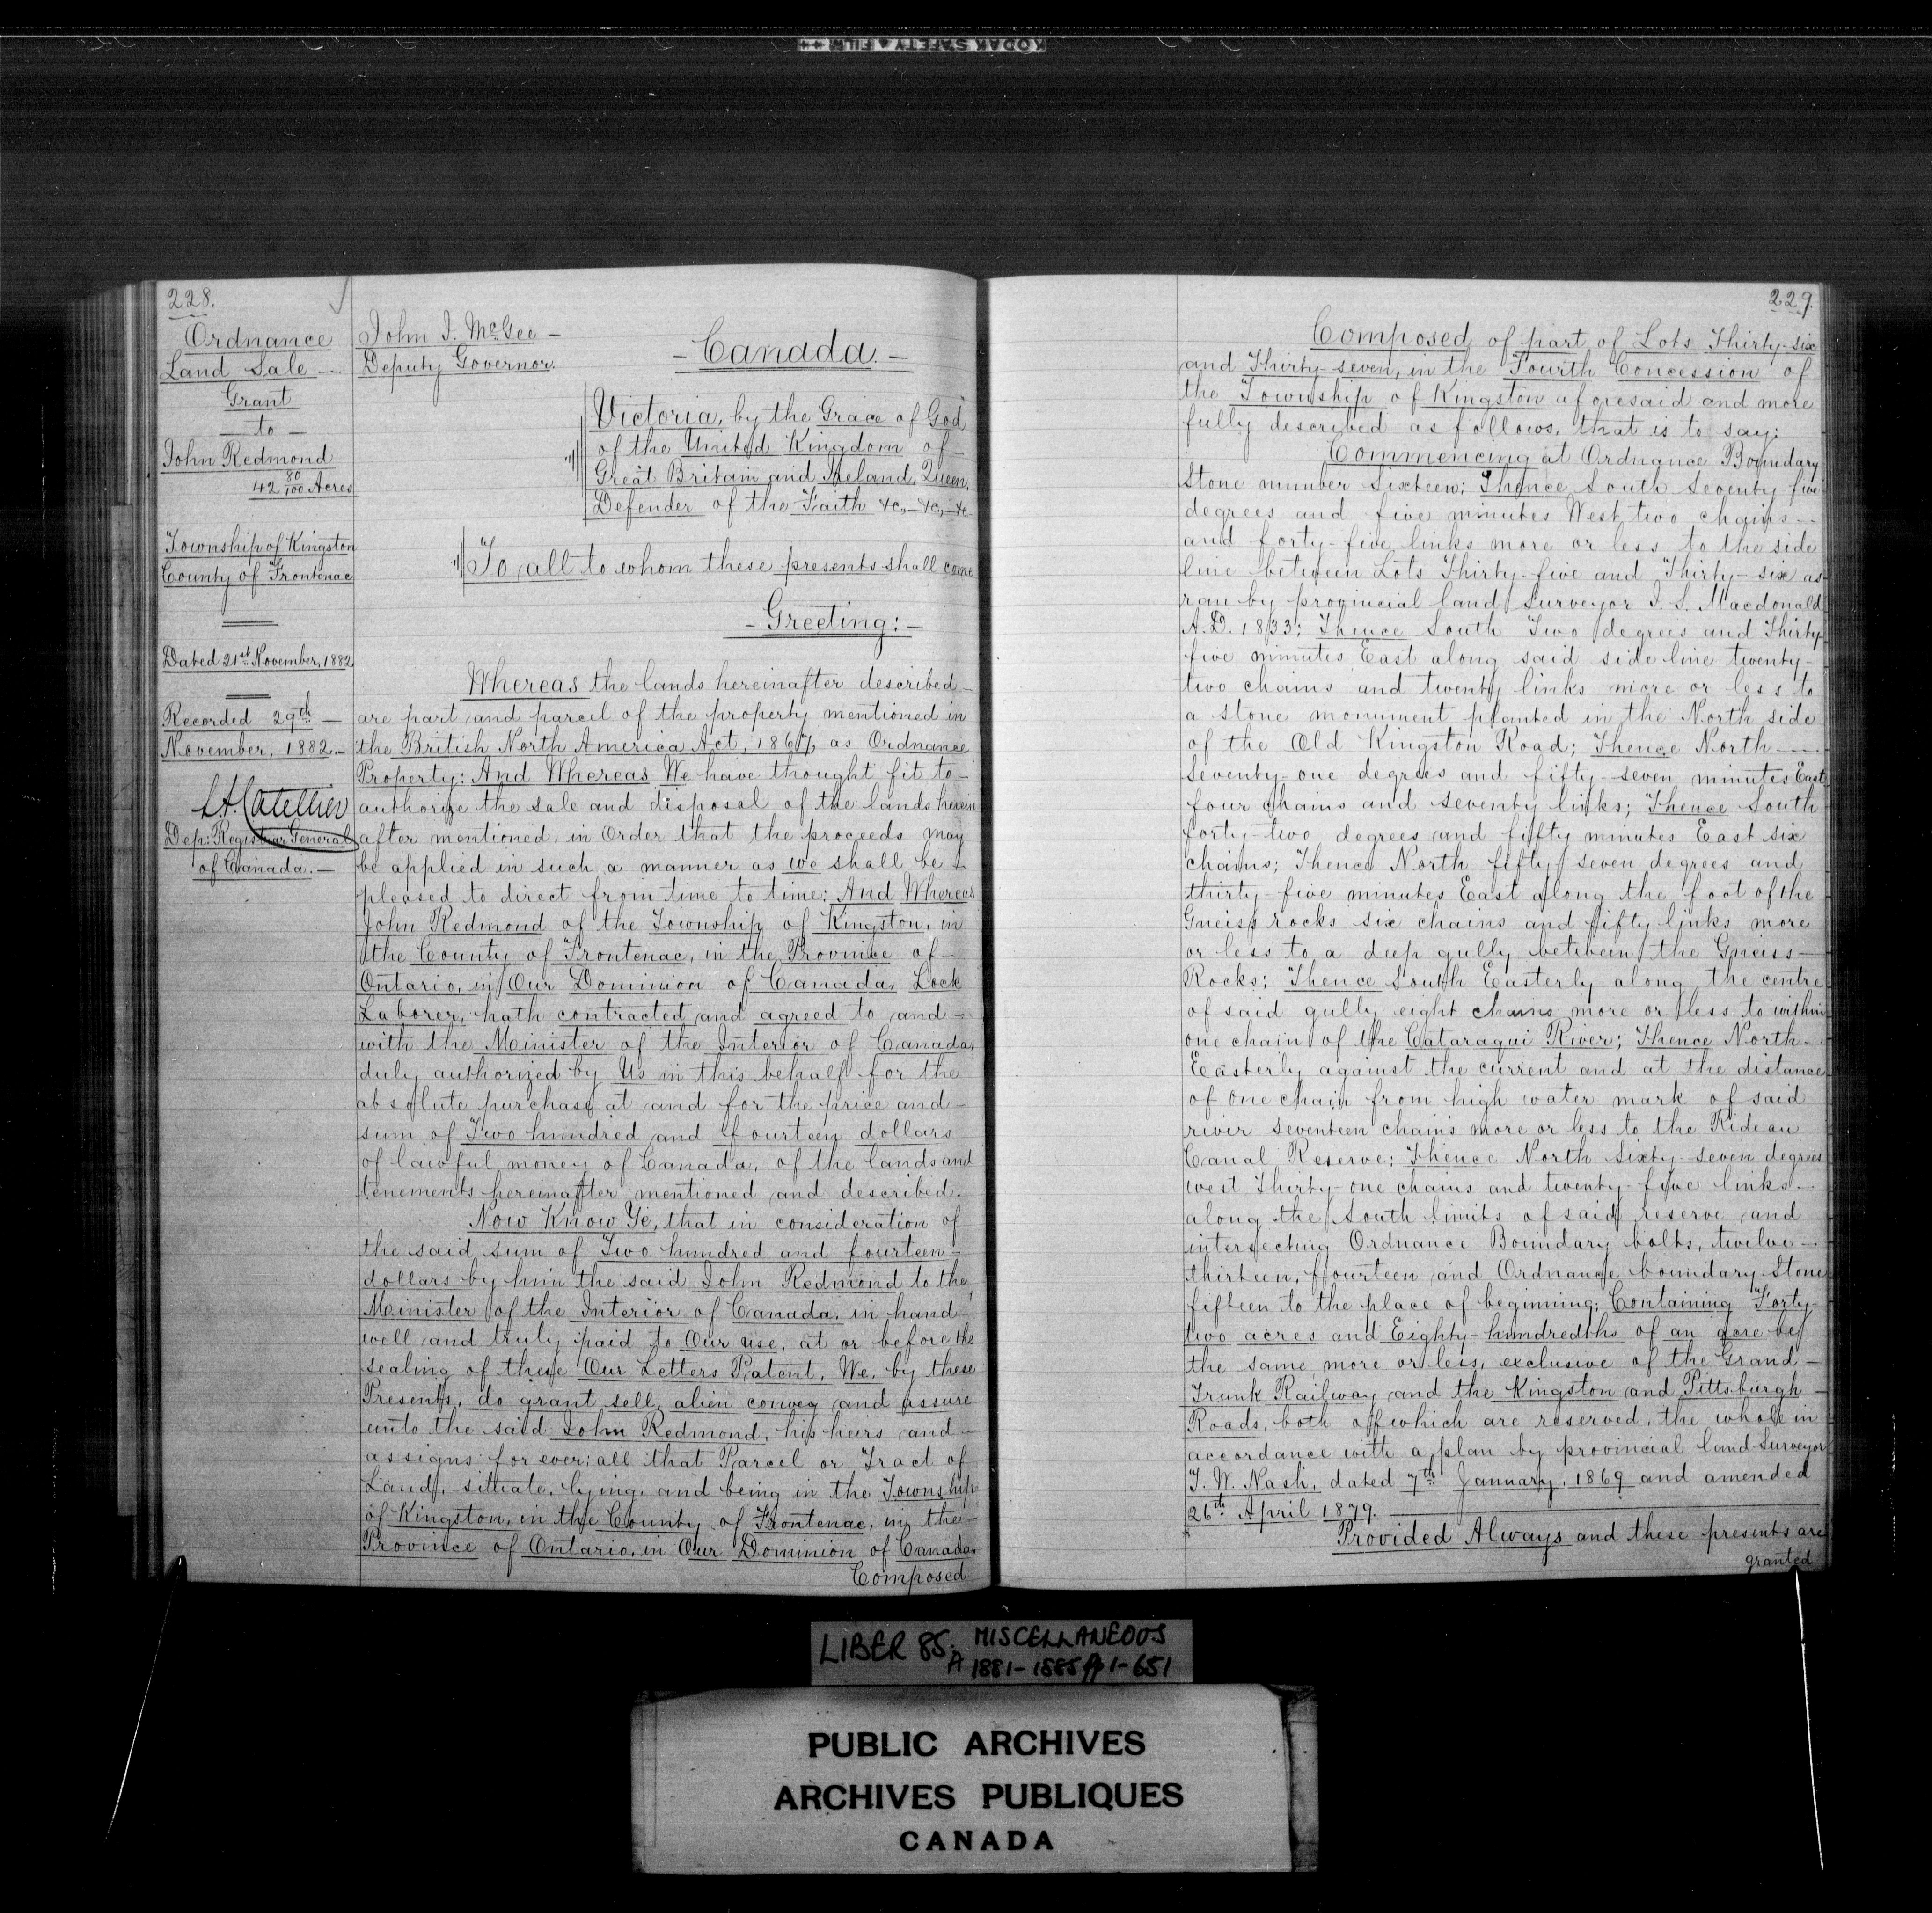 KODAK SAFETY FILM
228.
Ordnance
Land Sale —
Grant
— to —
John Redmond
42 80/100 Acres
Township of Kingston
County of Frontenac
Dated 21st November, 1882
Recorded 29th —
November, 1882. —
L.A. Catellier
Dep: Registrar General
of Canada. —
John J. McGee —
Deputy Governor.
— Canada. —
Victoria, by the Grace of God
of the United Kingdom of —
Great Britain and Ireland, Queen,
Defender of the Faith &c, — &c, — &c —
To all to whom these presents shall come
— Greeting: —
Whereas the lands hereinafter described —
are part and parcel of the property mentioned in
the British North America Act, 1867, as Ordnance
Property: And Whereas We have thought fit to —
authorize the sale and disposal of the lands herein
after mentioned, in Order that the proceeds may
be applied in such a manner as we shall be —
pleased to direct from time to time: And Whereas
John Redmond of the Township of Kingston, in
the County of Frontenac, in the Province of —
Ontario, in Our Dominion of Canada, Lock
Laborer, hath contracted and agreed to and —
with the Minister of the Interior of Canada,
duly authorized by Us in this behalf for the
absolute purchase at and for the price and —
sum of Two hundred and fourteen dollars
of lawful money of Canada, of the lands and
tenements hereinafter mentioned and described.
Now Know Ye, that in consideration of
the said sum of Two hundred and fourteen —
dollars by him the said John Redmond to the
Minister of the Interior of Canada, in hand
well and truly paid to Our use, at or before the
sealing of these Our Letters Patent, We, by these
Presents, do grant sell, alien convey and assure
unto the said John Redmond, his heirs and —
assigns for ever; all that Parcel or Tract of
Land, situate, lying, and being in the Township
of Kingston, in the County of Frontenac, in the —
Province of Ontario, in Our Dominion of Canada.
Composed
229.
Composed of part of Lots Thirty-six
and Thirty-seven, in the Fourth Concession of
the Township of Kingston aforesaid and more
fully described as follows, that is to say:
Commencing at Ordnance Boundary
Stone number Sixteen; Thence South Seventy five
degrees and five minutes West two chains —
and forty-five links more or less to the side
line between Lots Thirty-five and Thirty-six as
ran by provincial land Surveyor J. S. Macdonald
A.D. 1833; Thence South Two degrees and Thirty
five minutes East along said side line twenty-
two chains and twenty links more or less to
a stone monument planted in the North side
of the Old Kingston Road; Thence North —
Seventy-one degrees and fifty-seven minutes East
four chains and seventy links; Thence South
forty-two degrees and fifty minutes East six
chains; Thence North fifty seven degrees and
thirty-five minutes East along the foot of the
Gneiss rocks six chains and fifty links more
or less to a deep gully between the Gneiss —
Rocks; Thence South Easterly along the centre
of said gully eight chains more or less to within
one chain of the Cataraqui River; Thence North —
Easterly against the current and at the distance
of one chain from high water mark of said
river seventeen chains more or less to the Rideau
Canal Reserve; Thence North Sixty-seven degrees
west Thirty-one chains and twenty-five links —
along the South limits of said reserve and
intersecting Ordnance Boundary bolts, twelve —
thirteen, fourteen and Ordnance boundary Stone
fifteen to the place of beginning; Containing Forty-
two acres and Eighty-hundredths of an acre be
the same more or less, exclusive of the Grand —
Trunk Railway and the Kingston and Pittsburgh —
Roads, both of which are reserved, the whole in
accordance with a plan by provincial land Surveyor
T. W. Nash, dated 7th January, 1869 and amended
26th April 1879.
Provided Always and these presents are
granted
LIBER 85. MISCELLANEOUS
A 1881-1885 pp 1-651
PUBLIC ARCHIVES
ARCHIVES PUBLIQUES
CANADA